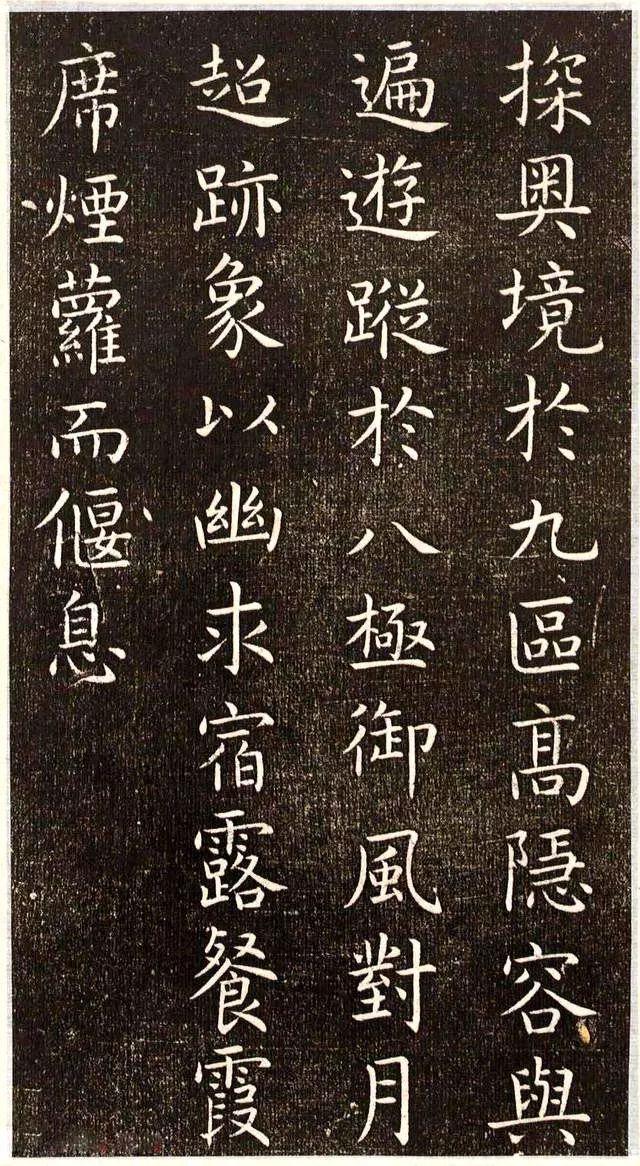 探奥境於九區高隱容與
遍遊蹤於八極御風對月
超跡象以幽求宿露餐霞
席煙蘿而偃息